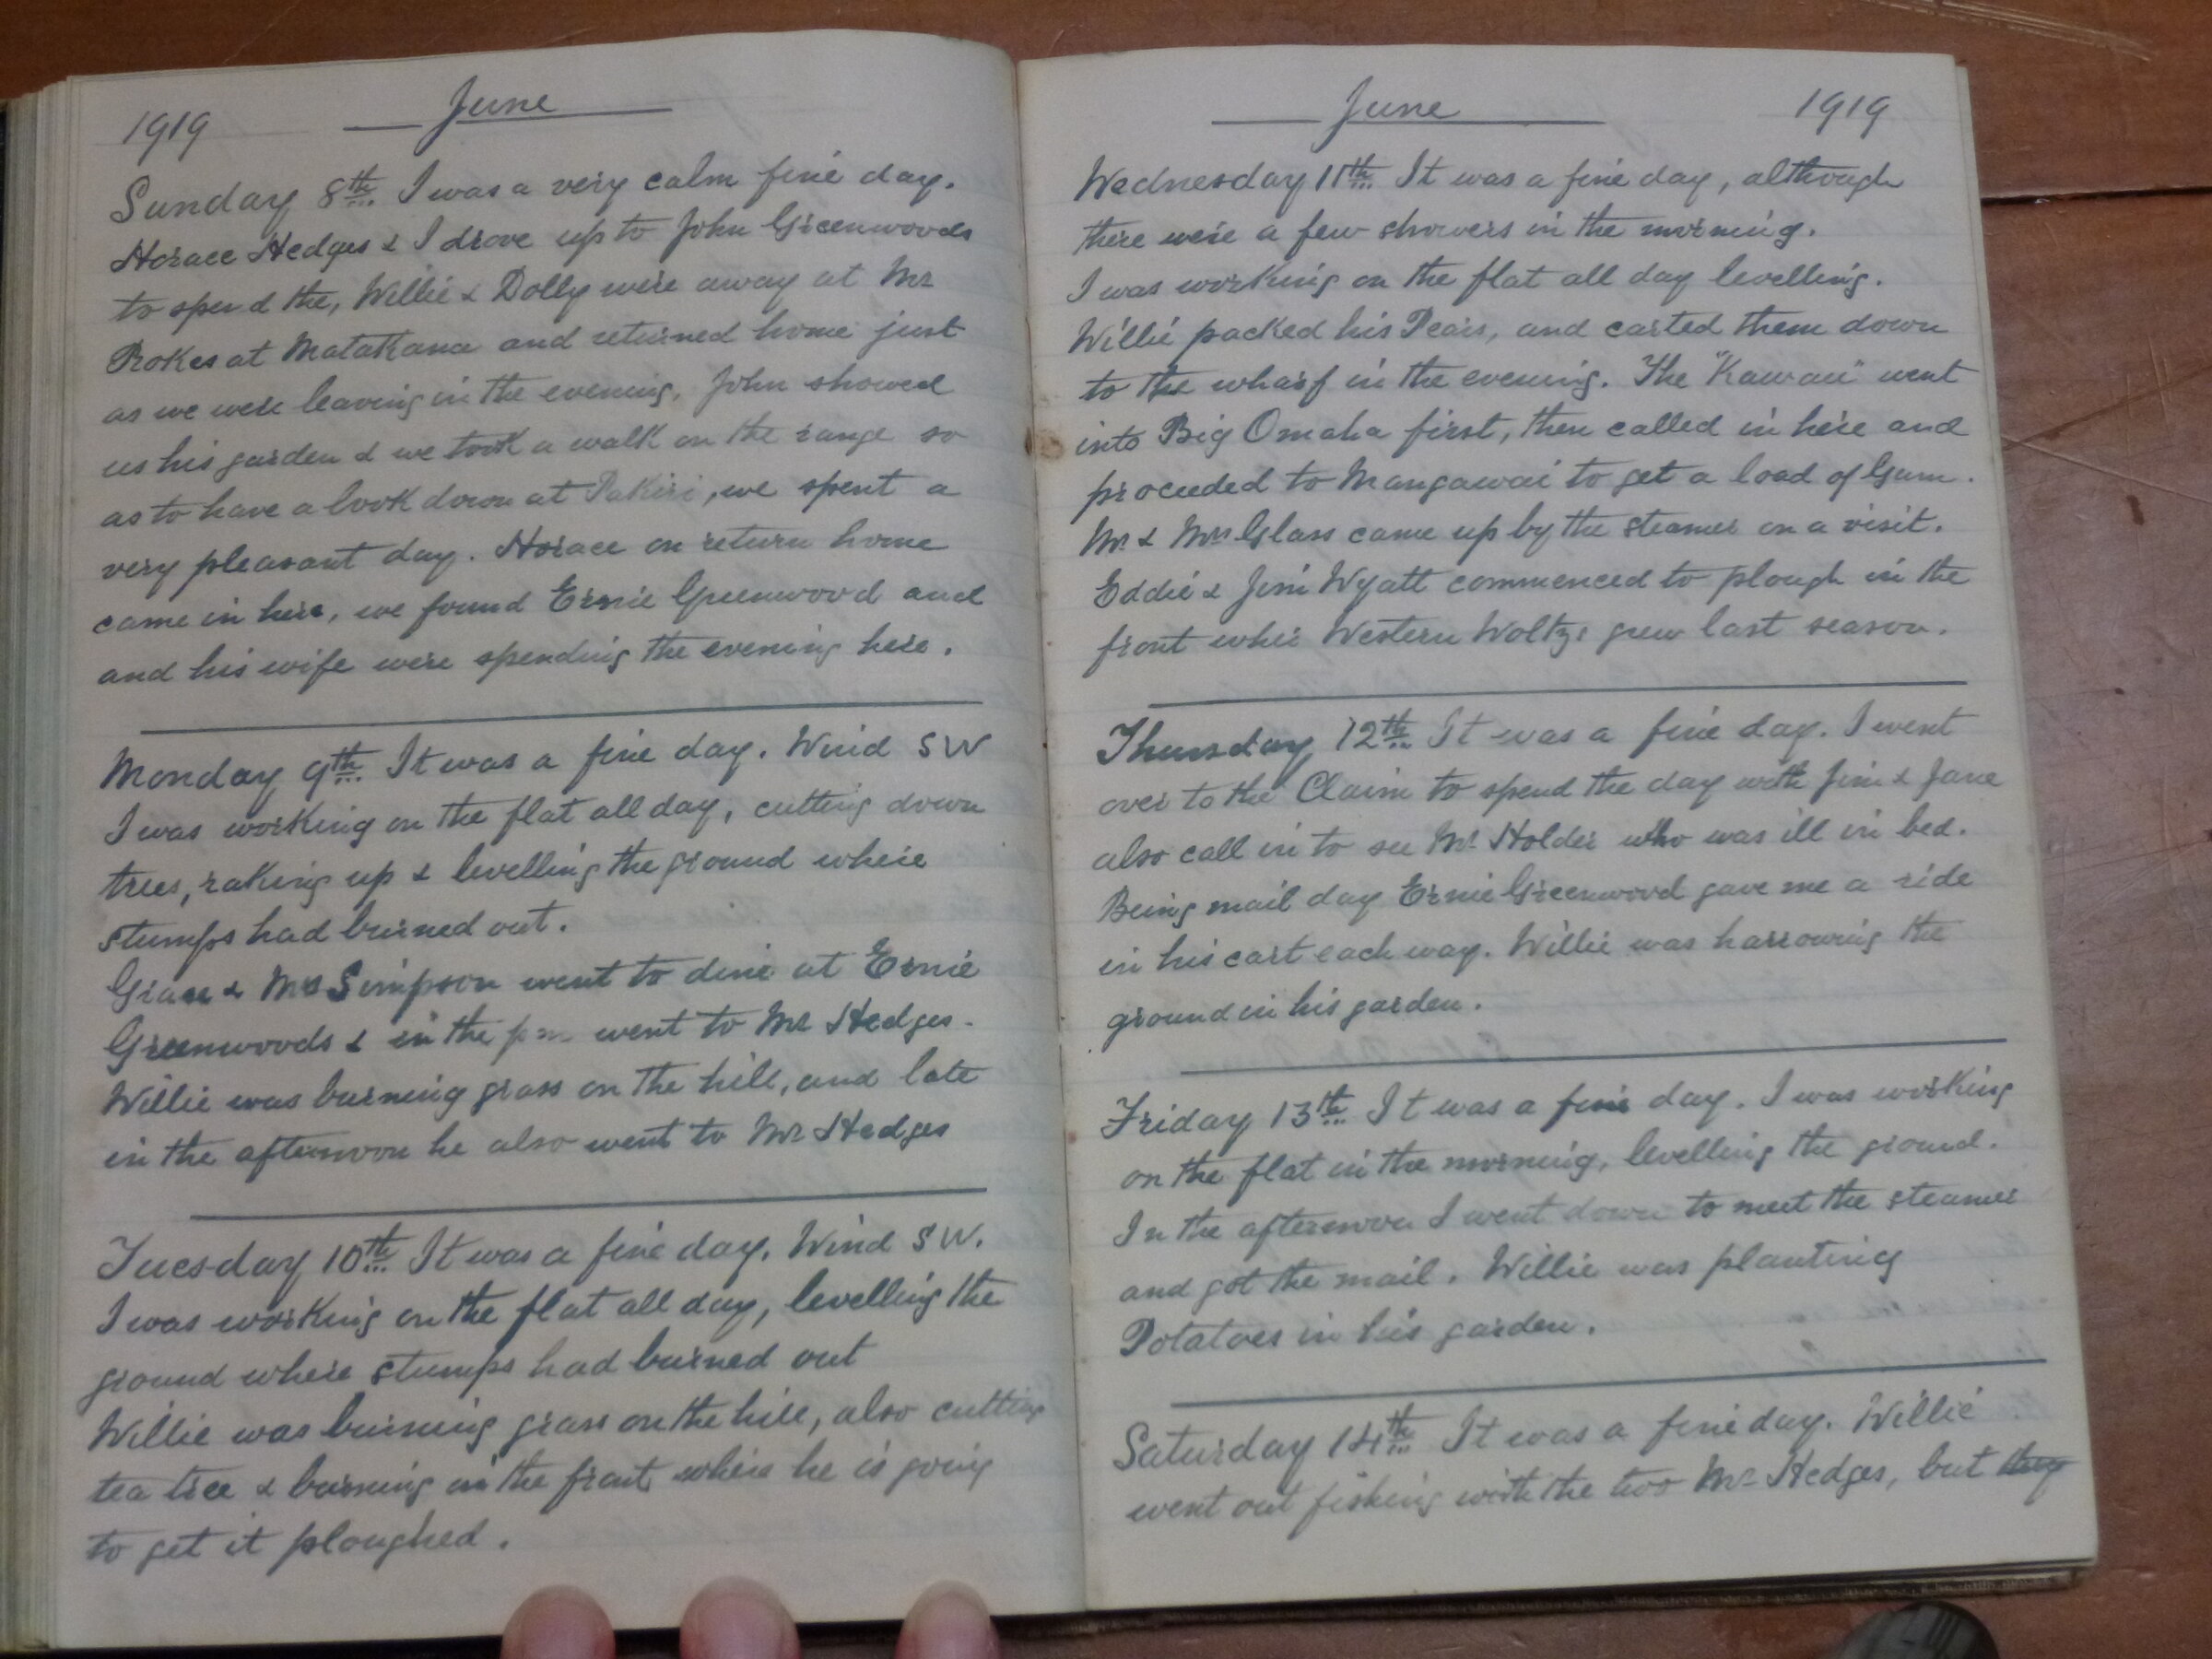 1919 June
Sunday 8th I was a very calm fine day.
Horace Hedges & I drove up to John Greenwoods
to spend the, Willie & Dolly were away at Mr
Rokes at Matakana and returned home just
as we were leaving in the evening. John showed
us his garden & we took a walk on the range so
as to have a look down at Pakiri, we spent a
very pleasant day. Horace on return home
came in here, we found Ernie Greenwood and
and his wife were spending the evening here.
Monday 9th It was a fine day. Wind SW
I was working on the flat all day, cutting down
trees, raking up & levelling the ground where
stumps had burned out.
Grace & Mrs Simpson went to dine at Ernie
Greenwoods & in the pm went to Mr Hedges.
Willie was burning grass on the hill, and late
in the afternoon he also went to Mr Hedges
Tuesday 10th It was a fine day. Wind SW.
I was working on the flat all day, levelling the
ground where stumps had burned out
Willie was burning grass on the hill, also cutting
tea tree & burning in the front where he is going
to get it ploughed.
June 1919
Wednesday 11th It was a fine day, although
there were a few showers in the morning.
I was working on the flat all day levelling.
Willie packed his Pears, and carted them down
to the wharf in the evening. The "Kawau" went
into Big Omaha first, then called in here and
proceeded to Mangawai to get a load of Gum.
Mr & Mrs Glass came up by the steamer on a visit.
Eddie & Jim Wyatt commenced to plough in the
front where Western Woltz's grew last season.
Thursday 12th It was a fine day. I went
over to the Claim to spend the day with Jim & Jane
also call in to see Mr Holder who was ill in bed.
Being mail day Ernie Greenwood gave me a ride
in his cart each way. Willie was harrowing the
ground in his garden.
Friday 13th It was a fine day. I was working
on the flat in the morning, levelling the ground.
In the afternoon I went down to meet the steamer
and got the mail. Willie was planting
Potatoes in his garden.
Saturday 14th It was a fine day. Willie
went out fishing with the two Mr Hedges, but they